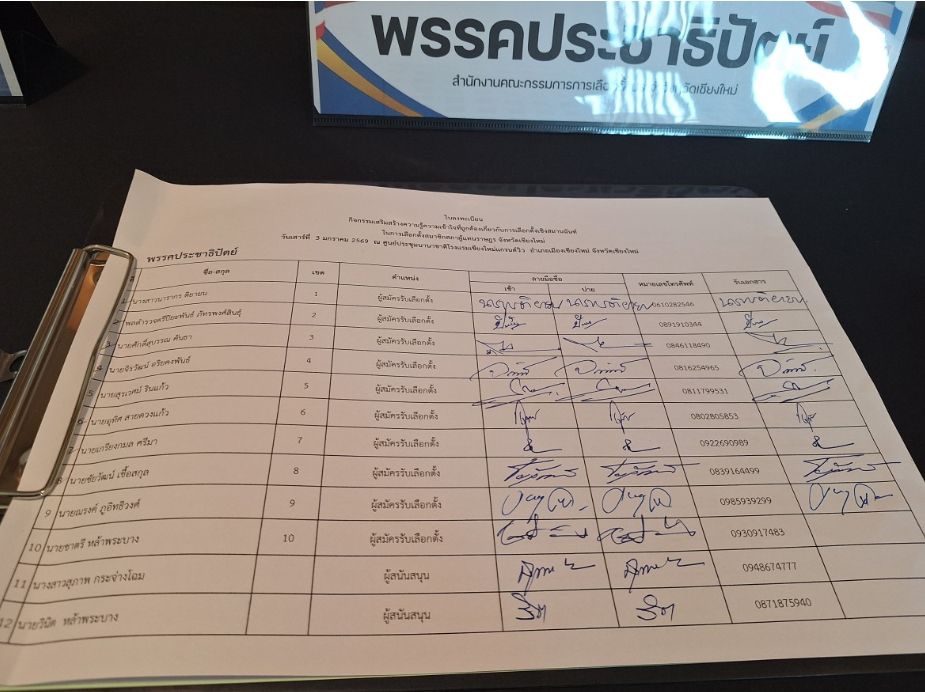 พรรคประชาธิปัตย์
สำนักงานคณะกรรมการการเลือกตั้งประจำจังหวัดเชียงใหม่
ใบลงทะเบียน
กิจกรรมเสริมสร้างความรู้ความเข้าใจที่ถูกต้องเกี่ยวกับการเลือกตั้งเชิงสมานฉันท์
ในการเลือกตั้งสมาชิกสภาผู้แทนราษฎร จังหวัดเชียงใหม่
วันเสาร์ที่ 3 มกราคม 2569 ณ ศูนย์ประชุมนานาชาติโรงแรมเชียงใหม่แกรนด์วิว อำเภอเมืองเชียงใหม่ จังหวัดเชียงใหม่
พรรคประชาธิปัตย์
ชื่อ-สกุล เขต ตำแหน่ง ลายมือชื่อ หมายเลขโทรศัพท์ รับเอกสาร
เช้า บ่าย
นางสาวนารากร ติยายน 1 ผู้สมัครรับเลือกตั้ง 0610282546
พลตำรวจตรีปิยะพันธ์ ภัทรพงศ์สินธุ์ 2 ผู้สมัครรับเลือกตั้ง 0891910344
3 นายศักดิ์สุบรรณ คันธา 3 ผู้สมัครรับเลือกตั้ง 0846118490
4 นายจิรวัฒน์ อริยคงพันธ์ 4 ผู้สมัครรับเลือกตั้ง 0816254965
5 นายสุรเวศม์ รินแก้ว 5 ผู้สมัครรับเลือกตั้ง 0811799531
6 นายอุทิศ สายดวงแก้ว 6 ผู้สมัครรับเลือกตั้ง 0802805853
7 นายเกรียงกมล ศรีมา 7 ผู้สมัครรับเลือกตั้ง 0922690989
8 นายชัยวัฒน์ เชื้อสกุล 8 ผู้สมัครรับเลือกตั้ง 0839164499
9 นายณรงค์ ภูอิทธิวงศ์ 9 ผู้สมัครรับเลือกตั้ง 0985939299
10 นายชาตรี หล้าพระบาง 10 ผู้สมัครรับเลือกตั้ง 0930917483
11 นางสาวสุภาพ กระจ่างโฉม ผู้สนับสนุน 0948674777
12 นายวินิต หล้าพระบาง ผู้สนับสนุน 0871875940